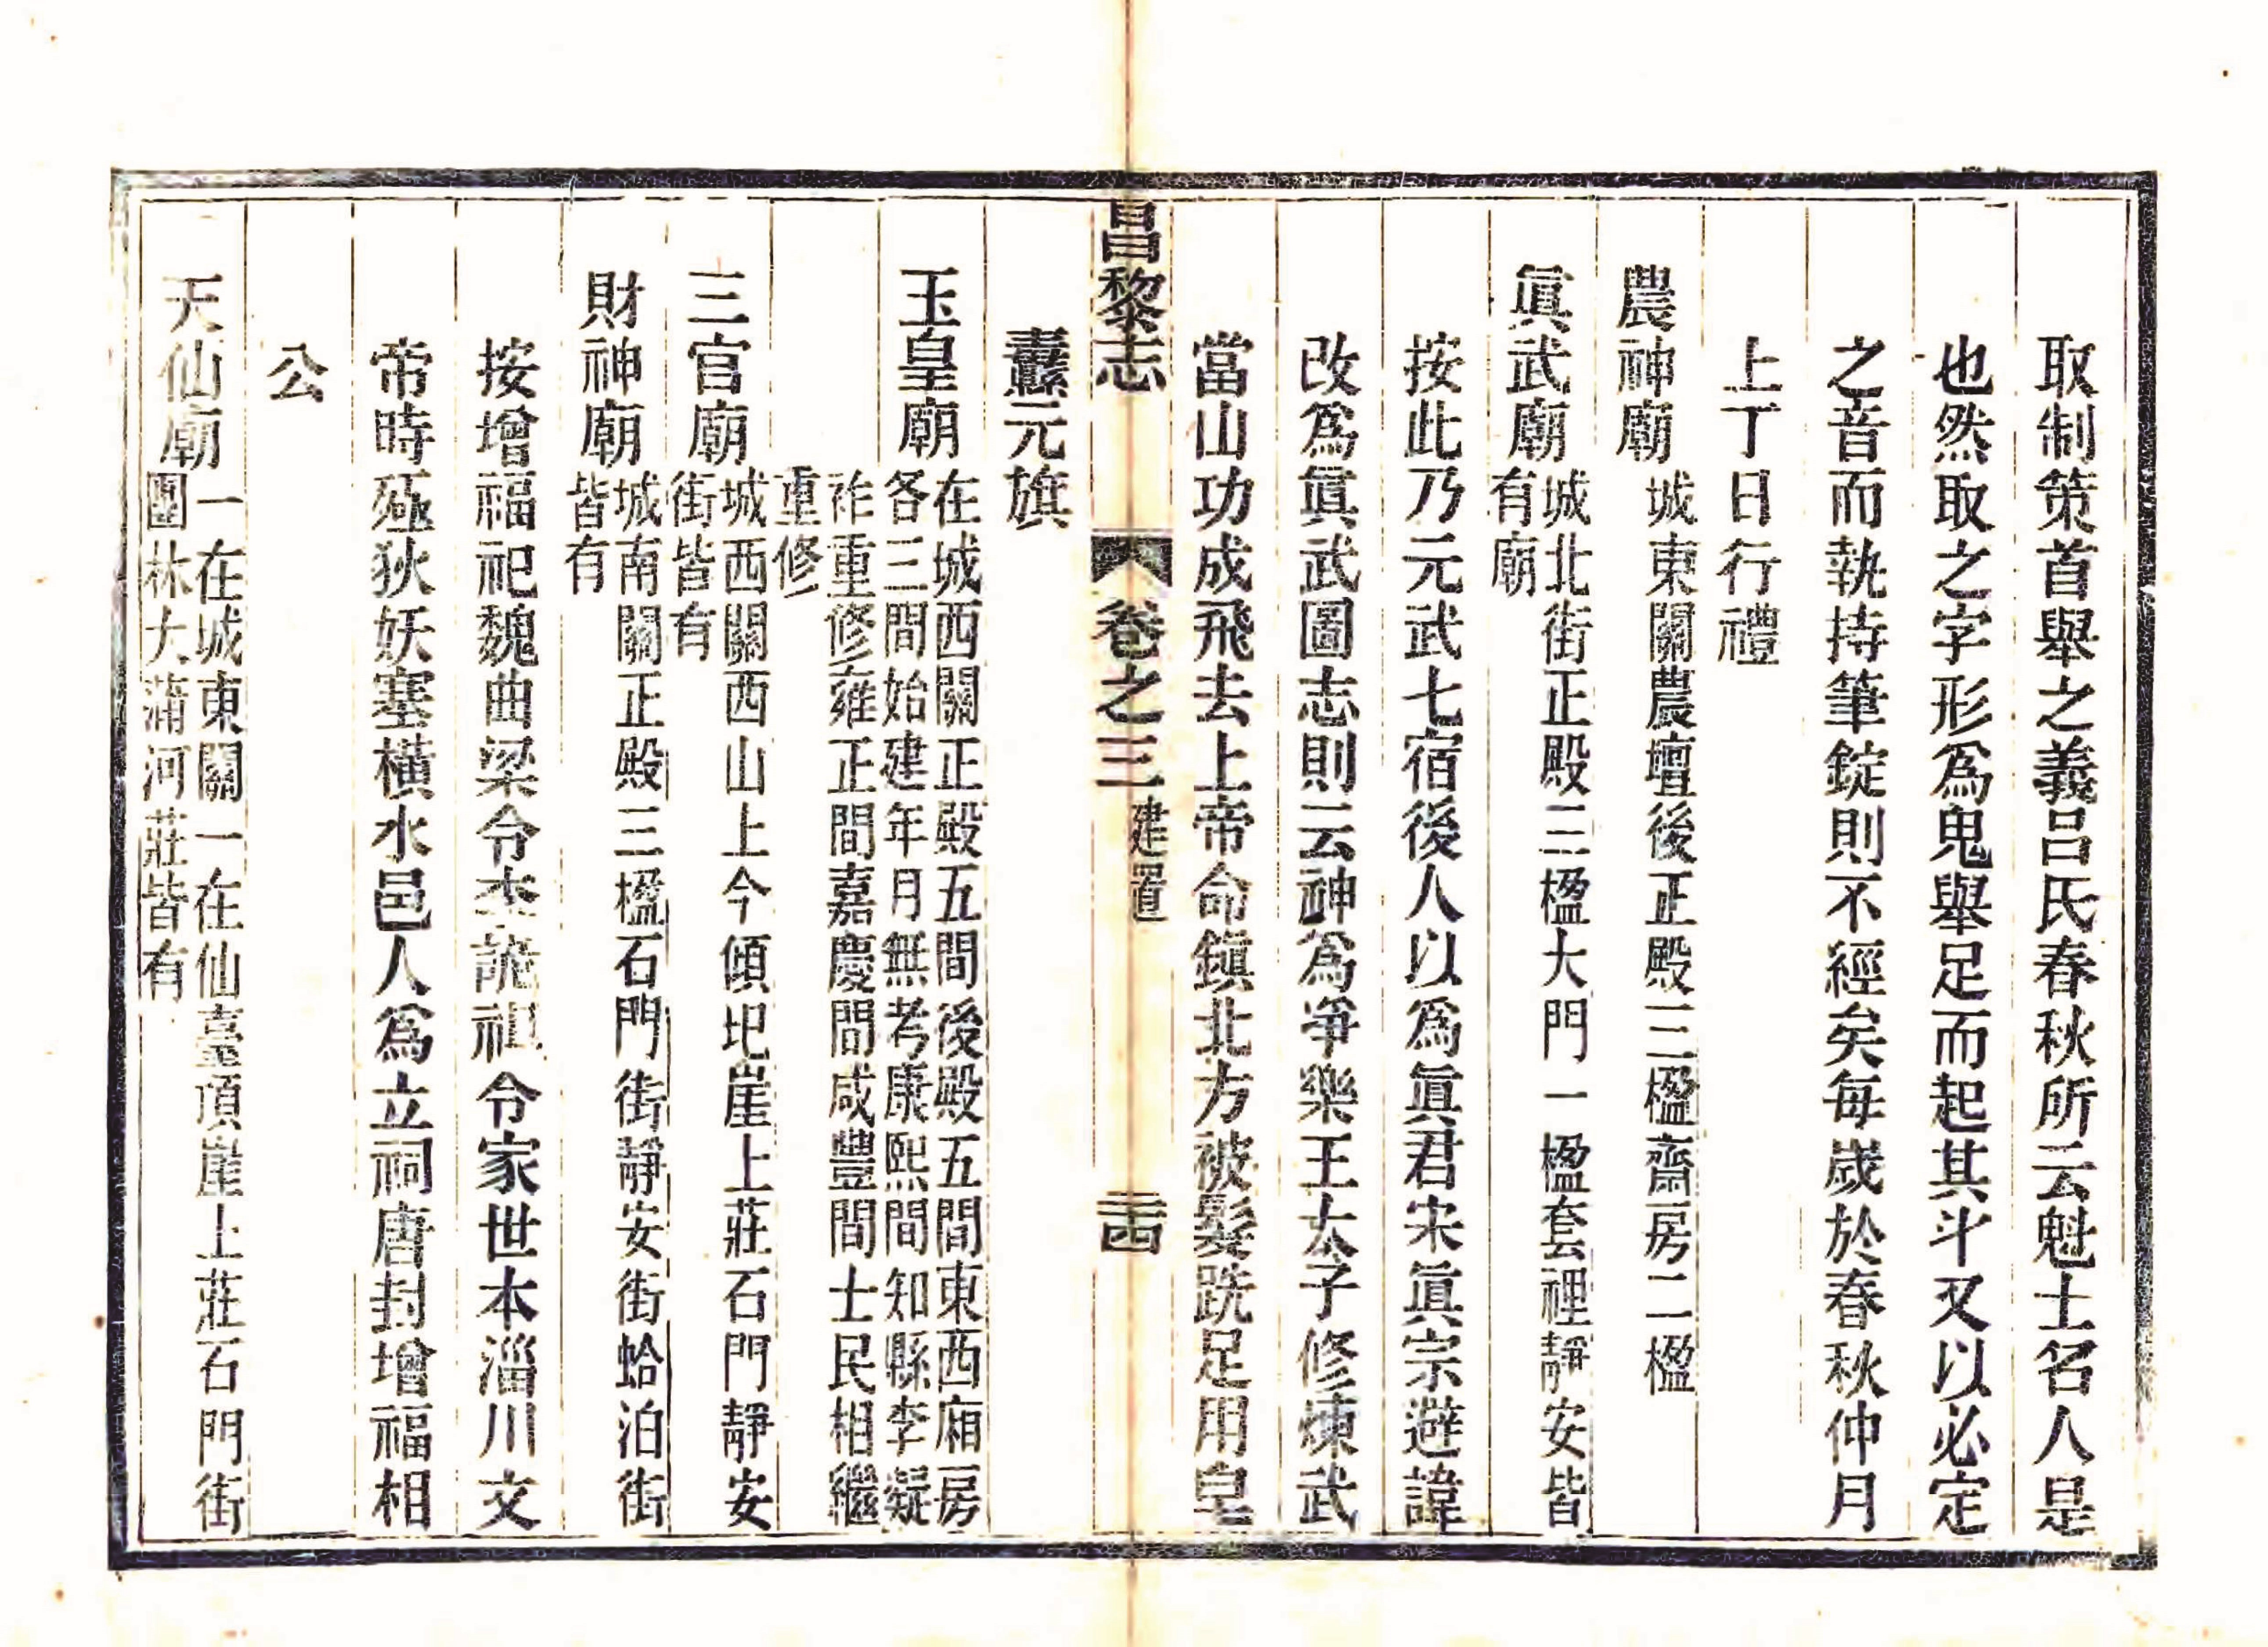 取制策首舉之義呂氏春秋所云魁士名人是
也然取之字形爲鬼舉足而起其斗又以必定
之音而執持筆錠則不經矣每歲於春秋仲月
上丁日行禮
農神廟城東關農壇後正殿三楹齋房二楹
眞武廟城北街正殿三楹大門一楹套裡靜安皆
有廟
按此乃元武七宿後人以爲眞君宋眞宗避諱
改爲眞武圖志則云神爲爭樂王太子修煉武
當山功成飛去上帝命鎭北方被髮跣足用皂
昌黎志 卷之三 建置 二十四
纛元旗
玉皇廟在城西關正殿五間後殿五間東西廂房
各三間始建年月無考康熙間知縣李凝
祚重修雍正間嘉慶間咸豐間士民相繼
重修
三官廟城西關西山上今傾圯崖上莊石門靜安
街皆有
財神廟城南關正殿三楹石門街靜安街蛤泊街
皆有
按增福祀魏曲梁令李詭祖令家世本淄川文
帝時殛狄妖塞橫水邑人爲立祠唐封增福相
公
天仙廟一在城東關一在仙臺頂崖上莊石門街
團林大蒲河莊皆有